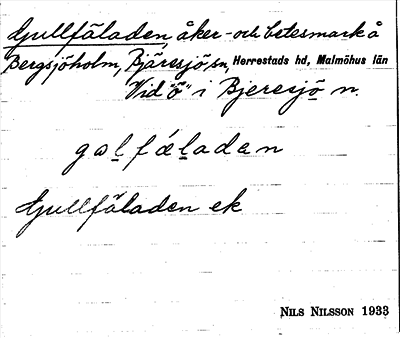 Gullfäladen, åker- och betesmark å
Bergsjöholm, Bjäresjö sn, Herrestads hd, Malmöhus län
Vid "ö" i Bjeresjö n.
galfäladen
Gullfäladen ek
NILS NILSSON 1933